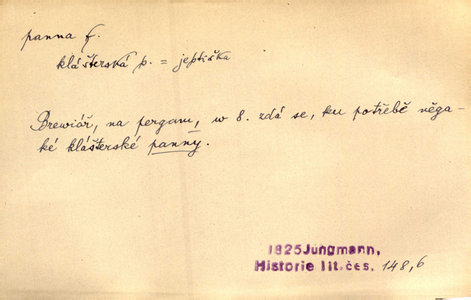 panna f.
klášterská p. = jeptiška
Brewiář, na pergam, w 8. zdá se, ku potřebě něga-
ké klášterské panny.
1825 Jungmann,
Historie lit. čes. 148,6